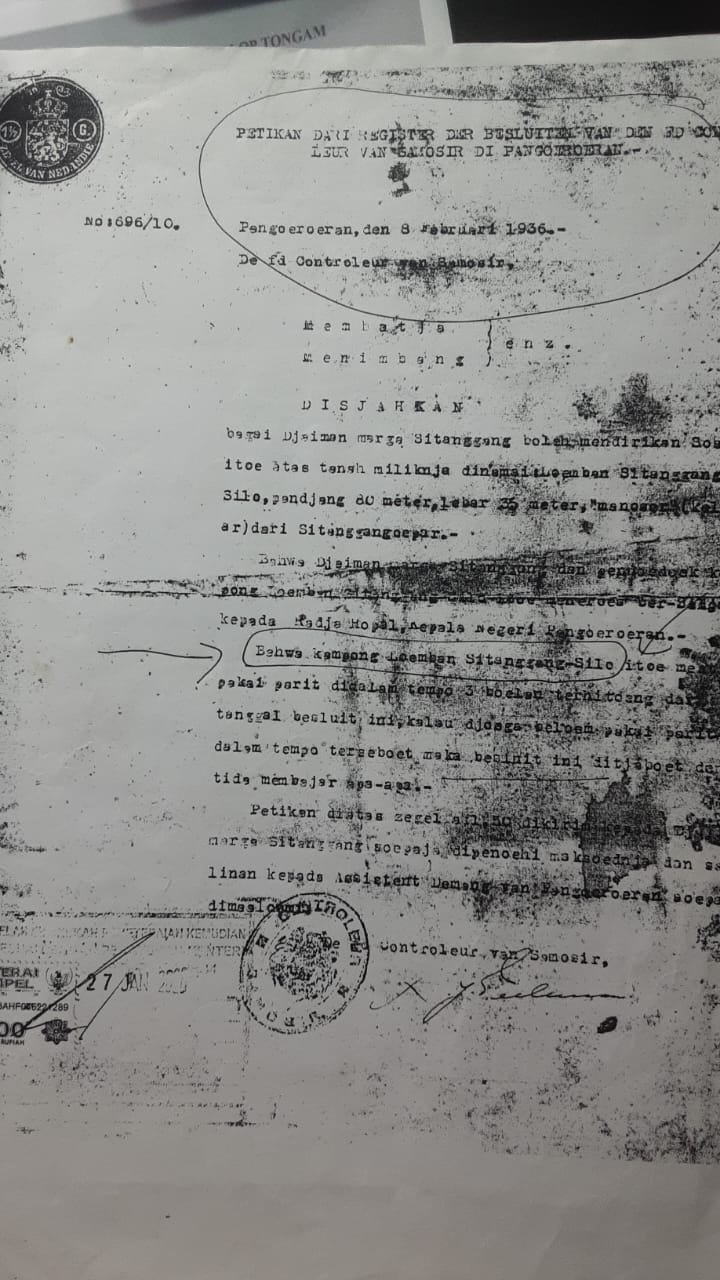 OR TONGAM
1½ G.
VAN NED. INDIE
PETIKAN DARI REGISTER DER BESLUITEN VAN DEN FD CON
LEUR VAN SAMOSIR DI PANGOEROERAN.-
No:696/10.
Pangoeroeran, den 8 Februari 1936.-
De fd Controleur van Samosir,
Membatja
enz.
Menimbang
DISJAHKAN
bagai Djaiman marga Sitanggang boleh mendirikan
itoe atas tanah miliknja dinamai Loemban Sitanggang
Silo, pandjang 80 meter, lebar 35 meter, "manoser" (kel
ar) dari Sitanggangoepar.-
Bahwa Djaiman marga Sitanggang dan pendoedoek k
pong Loemban Sitanggang Silo itoe
kepada Radja Hopal, Kepala Negeri Pangoeroeran.-
Bahwa kampong Loemban Sitanggang-Silo itoe me
pakai parit didalam tempo 3 boelan terhitoeng dar
tanggal besluit ini, kalau djoega beloem pakai parit
dalam tempo terseboet maka besluit ini ditjaboet da
tida membajar apa-apa.-
Petikan diatas zegel a f1,50 dikirim kepada Dj
marga Sitanggang soepaja dipenoehi maksoednja dan sa
linan kepada Assistent Demang van Pangoeroeran soepa
dimaaloemi.
De Controleur van Samosir,
CONTROLEUR
KEMUDIAN
TERAI
MPEL
27 JAN
289
00
RUPIAH